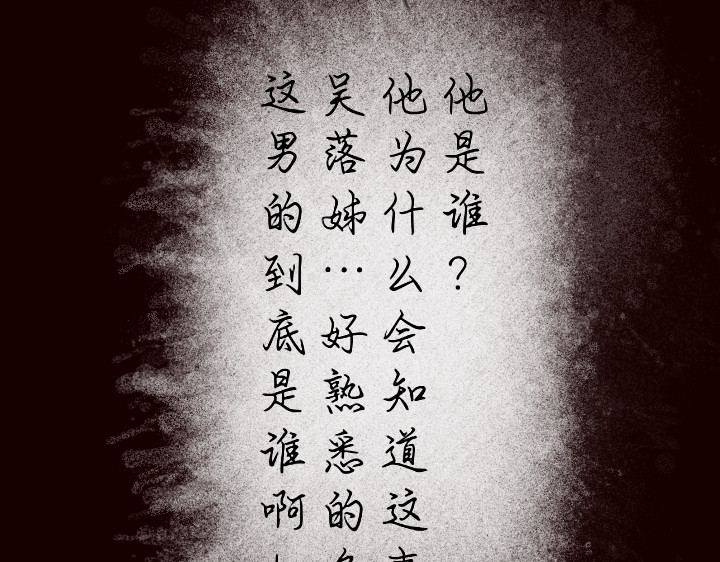 他是谁?
他为什么会知道这
吴落姊…好熟悉的
这男的到底是谁啊